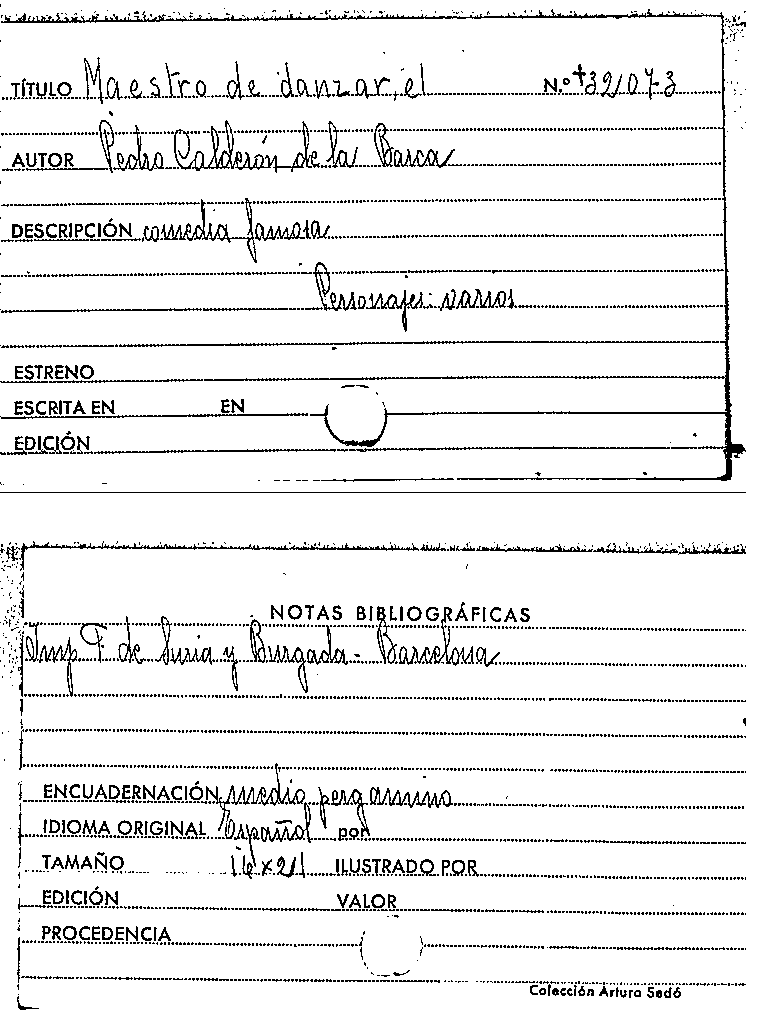 TÍTULO Maestro de danzar, el N.º +32107-3
AUTOR Pedro Calderón de la Barca
DESCRIPCIÓN comedia famosa
Personajes: varios
ESTRENO
ESCRITA EN EN
EDICIÓN
NOTAS BIBLIOGRÁFICAS
Imp F. de Suria y Burgada - Barcelona
ENCUADERNACIÓN medio pergamino
IDIOMA ORIGINAL Español por
TAMAÑO 16 x 21 ILUSTRADO POR
EDICIÓN VALOR
PROCEDENCIA
Colección Arturo Sedó